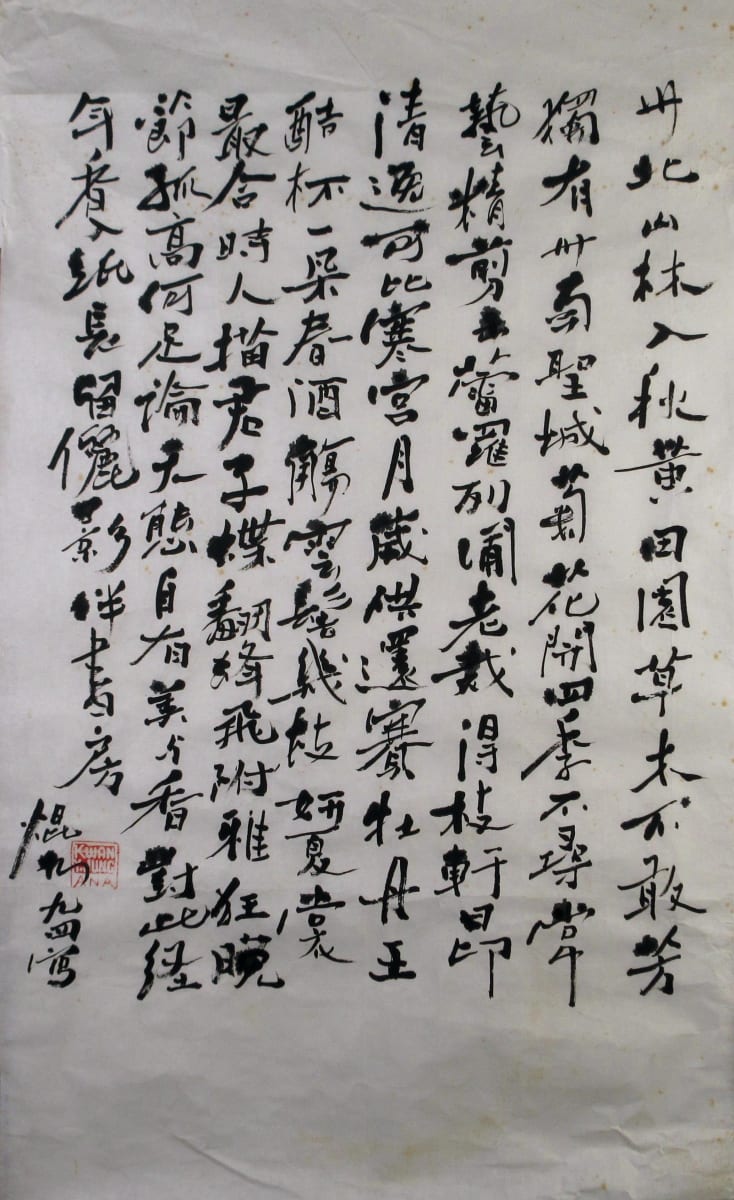 州北山林入秋黃田園草木不敢芳
獨有州南聖城菊花開四季不尋常
藝精剪玉蕾羅列圃老栽得枝軒昂
清逸可比寒宮月歲供還賽牡丹王
酷杯一朵春酒觴雲髻幾枝妍夏裳
最合時人描君子蝶翻蜂飛附雅狂晚
節孤高何足論天態自有美与香對此経
年看入紙長留儷影伴書房
焜九四寫
KWAN
ANA